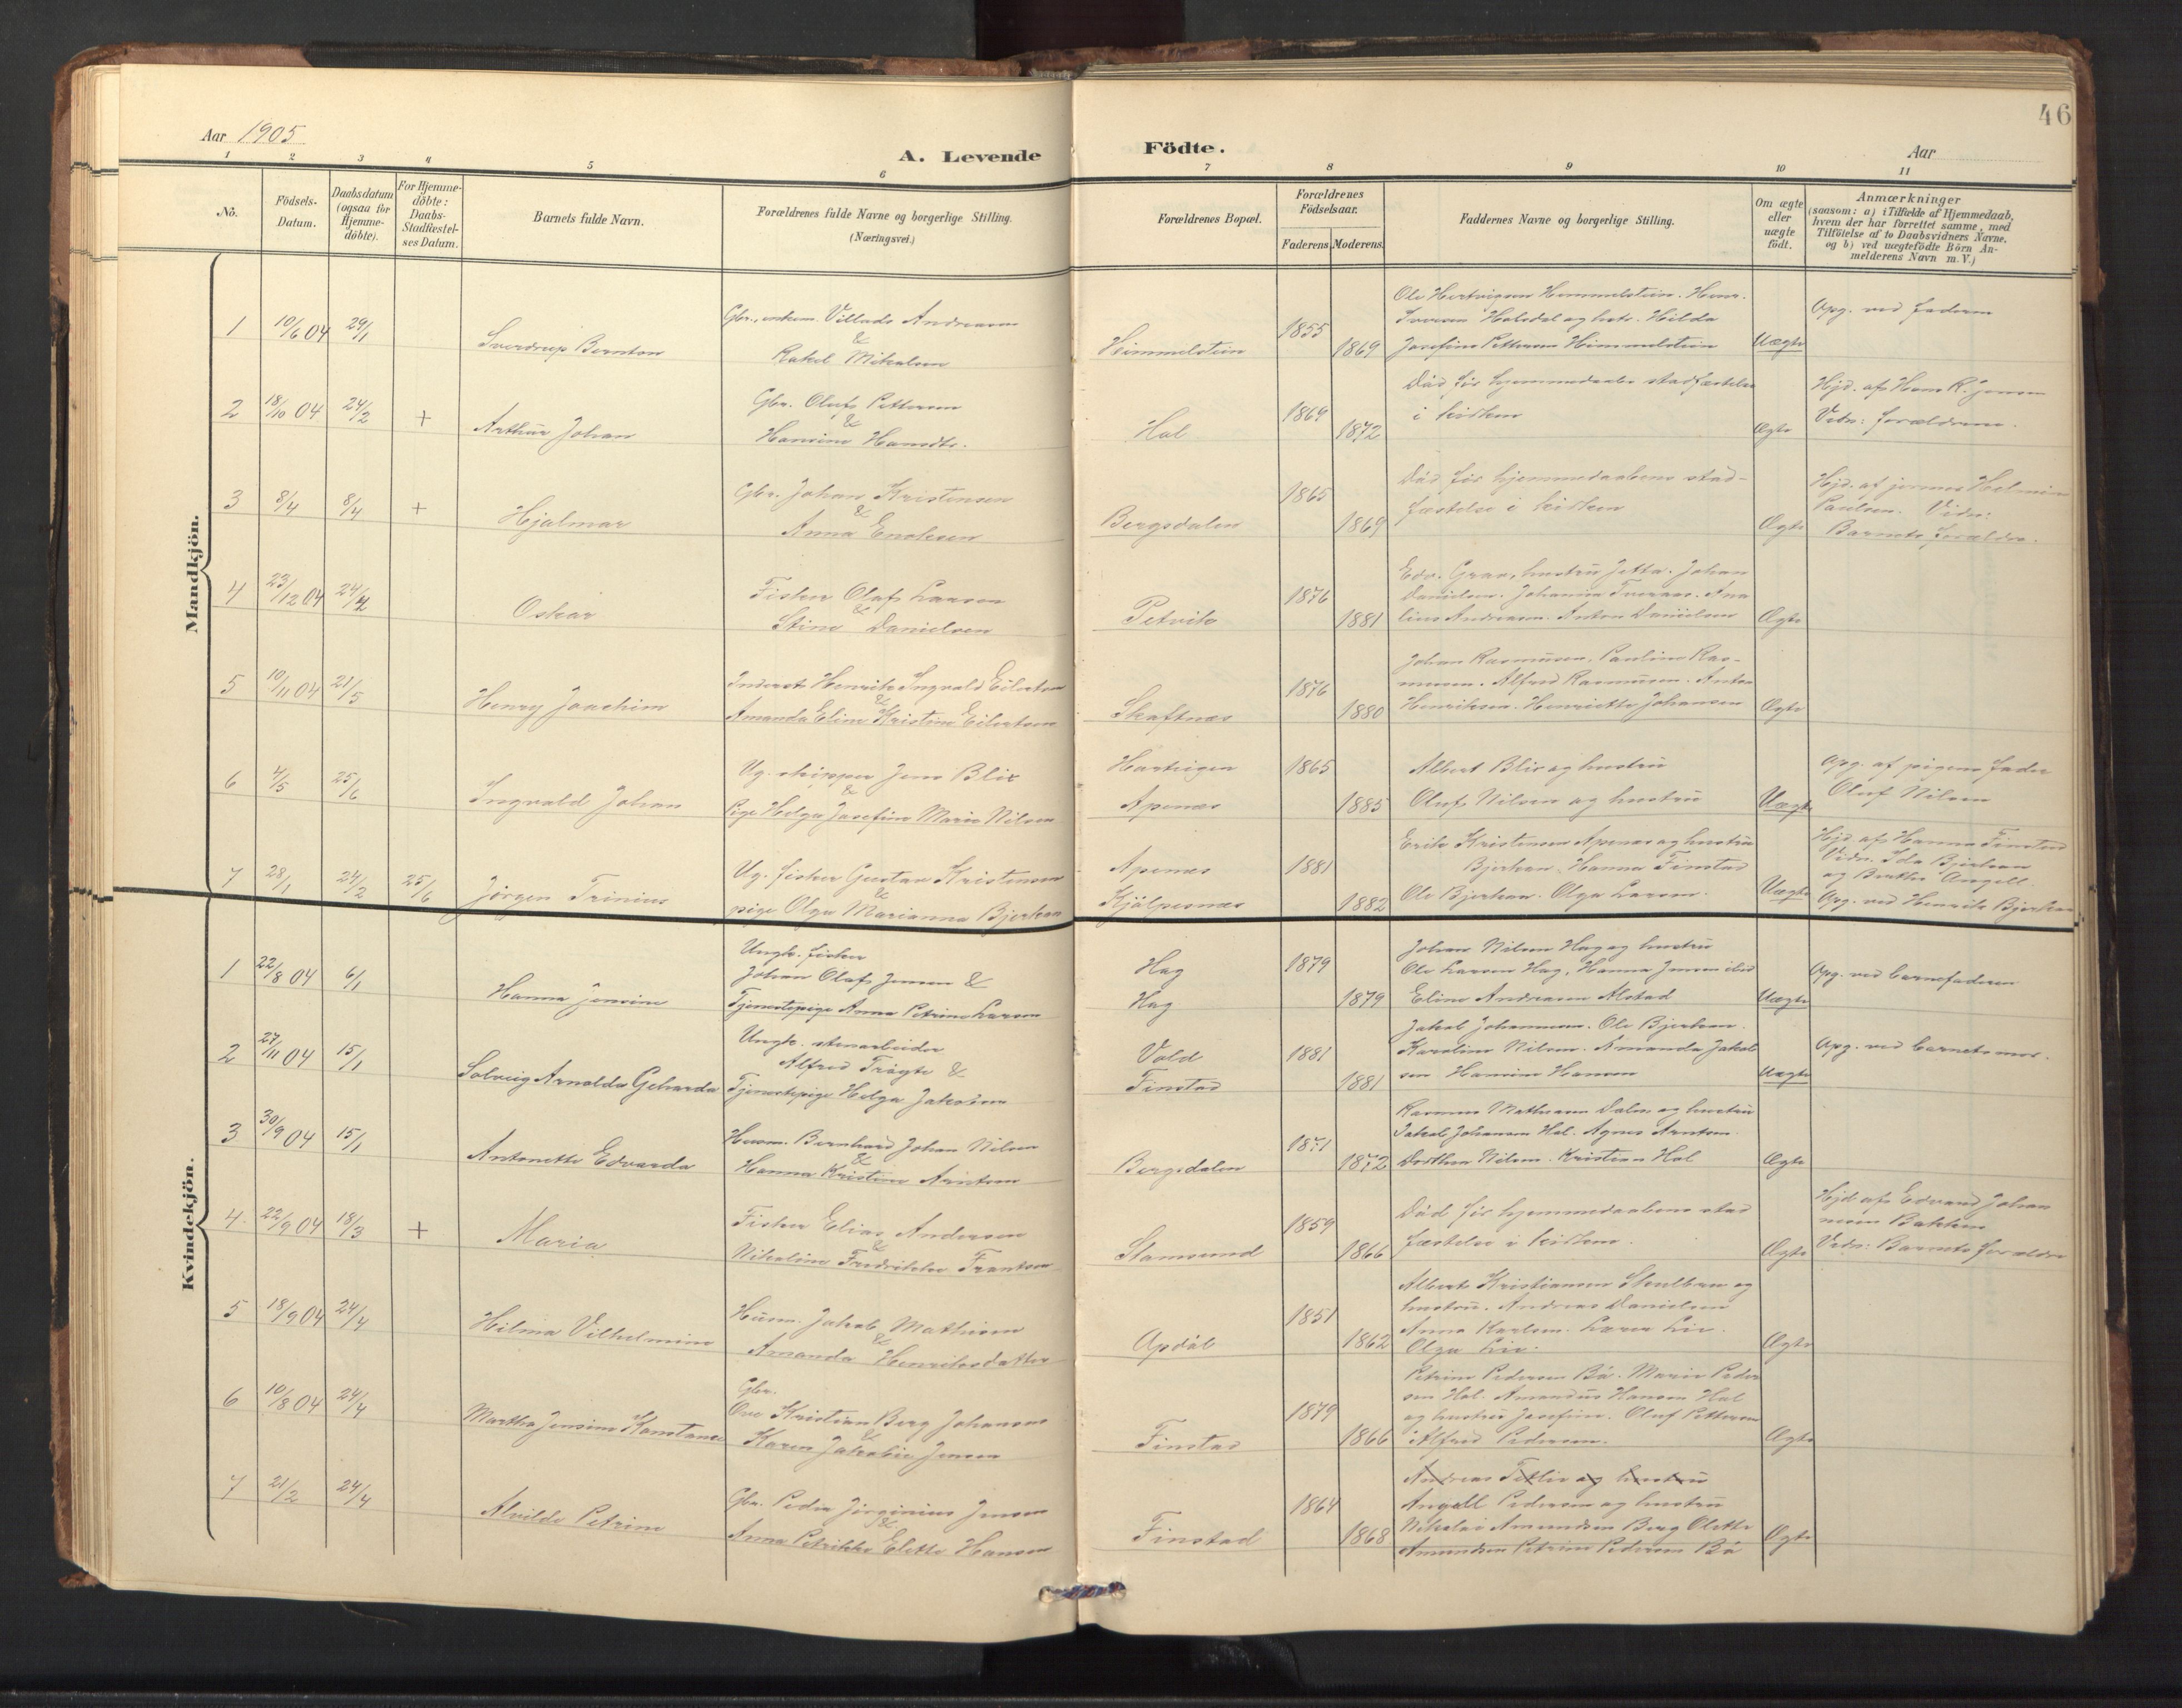 46
Aar 1905
A. Levende Födte.
Aar
1 2 3 4 5 6 7 8 9 10 11
No.
Födsels-Datum.
Daabsdatum (ogsaa for Hjemme-döbte).
For Hjemme-döbte: Daabs-Stadfæstel-ses Datum.
Barnets fulde Navn.
Forældrenes fulde Navne og borgerlige Stilling.
(Næringsvei.)
Forældrenes Bopæl.
Forældrenes Födselsaar.
Faderens Moderens.
Faddernes Navne og borgerlige Stilling.
Om ægte eller uægte födt.
Anmærkninger
(saasom: a) i Tilfælde af Hjemmedaab, hvem der har forrettet samme, med Tilföielse af to Daabsvidners Navne, og b) ved uægtefödte Börn Anmelderens Navn m. V.)
Mandkjön.
1 10/6 04 29/1
Sverdrup Bernton
Villads Andreasen
&
Rakel Mikalsen
Himmelstein
1855
1869
Ole Hertvigsen Himmelstein. Hans
Iversen Halsdal og hstr. Hilda
Josefine Pettersen Himmelstein
Uægte
Opg. ved faderen
2 18/10 04 24/2 +
Arthur Johan
Gbr. Oluf Pettersen
&
Hansine Hansdtr.
Hol
1869
1872
Död för hjemmedaabs stadfæstelse
i kirken
Ægte
Hjd. af Hans R. Jensen
Vidn: forældrene.
3 8/4 8/4 +
Hjalmar
Gbr. Johan Kristensen
&
Anna Enoksen
Bergsdalen
1865
1869
Död för hjemmedaabens stad-
fæstelse i kirken
Ægte
Hjd. af
Paulsen. Vidn:
Barnets forældre.
4 23/12 04 24/4
Oskar
Fisker Olaf Larsen
&
Stine Danielsen
Petvik
1876
1881
Edv. Grav, hustru Jetta. Johan
Danielsen. Johanna
Andreasen. Anton Danielsen
Ægte
5 10/11 04 21/5
Henry Joachim
Inderst Henrik Ingvald Eilertsen
&
Amanda Eline Kristine Eilertsen
Skaftnæs
1876
1880
Johan Rasmussen, Pauline Ras-
mussen. Alfred Rasmussen. Anton
Henriksen. Henriette Johansen
Ægte
6 4/5 25/6
Ingvald Johan
Ug. skipper Jens Blix
&
Pige Helga Josefine Marie Nilsen
Hartvigen
Apenæs
1865
1885
Albert Blix og hustru
Oluf Nilsen og hustru
Uægte
Opg. af pigens fader
Oluf Nilsen
7 28/1 24/2 25/6
Jörgen Trinius
Ug. fisker Gustav Kristensen
&
pige Olga Marianna Bjerkan
Apenæs
Kjölpesnæs
1881
1882
Erik Kristensen Apenæs og hustru
Bjerkan. Hanna Finstad
Ole Bjerkan. Olga Larsen.
Uægte
Hjd af Hanna Finstad
Vidn. Ida Bjerkan
og Berthe Angell.
Opg. ved Henrik Bjerkan
Kvindekjön.
1 22/8 04 6/1
Hanna Jensine
Ungk. fisker
Johan Olaf Jensen &
Tjenestepige Anna Petrine Larsen
Hag
Hag
1879
1879
Johan Nilsen Hag og hustru
Ole Larsen Hag, Hanna Jensen ibid
Eline Andreasen Alstad
Uægte
Opg. ved barnefaderen
2 27/11 04 15/1
Solveig Arnolda Geharda
Ungk. stenarbeider
Alfred Trögte &
Tjenestepige Helga Jakobsen
Vold
Finstad
1881
1881
Jakob Johannesen. Ole Bjerkan.
Karoline Nilsen. Amanda Jakob
sen. Hansine Hansen
Uægte
Opg. ved barnets mor.
3 30/9 04 15/1
Antonette Edvarda
Husm. Bernhard Johan Nilsen
&
Hanna Kristine Arntsen
Bergsdalen
1871
1872
Rasmus Mathisen Dalen og hustru
Jakob Johansen Hol. Agnes Arntsen
Dorthea Nilsen. Kristian Hol
Ægte
4. 22/9 04 18/3 +
Maria
Fisker Elias Andersen
&
Nikoline Fredrikke Frantsen
Stamsund
1859
1866
Död för hjemmedaabens stad
fæstelse i kirken.
Ægte
Hjd af Edvard Johan
nesen Bakken
Vidn: Barnets forældre
5 18/9 04 24/4
Hilma Vilhelmine
Husm. Jakob Mathisen
&
Amanda Henriksdatter
Apdöl
1851
1862
Albert Kristiansen og
hustru. Andreas Danielsen
Anna Karlsen. Lærer Lie.
Olga Lie.
Ægte
6 10/8 04 24/4
Martha Jensine Konstanse
Gbr.
Ove Kristian Berg Johansen
&
Karen Jakobie Jensen
Finstad
1879
1866
Petrine Pedersen Bö. Marie Peder
sen Hol. Amandus Hansen Hol
og hustru Josefine. Oluf Pettersen
Alfred Pedersen.
Ægte
7 21/2 24/4
Alvilde Petrine
Gbr. Peder Jörginius Jensen
&
Anna Petrikke Elette Hansen
Finstad
1864
1868
Andreas Tetlie og hustru
Angell Pedersen og hustru
Nikolai Amundsen Berg Olette
Amundsen Petrine Pedersen Bö
Ægte